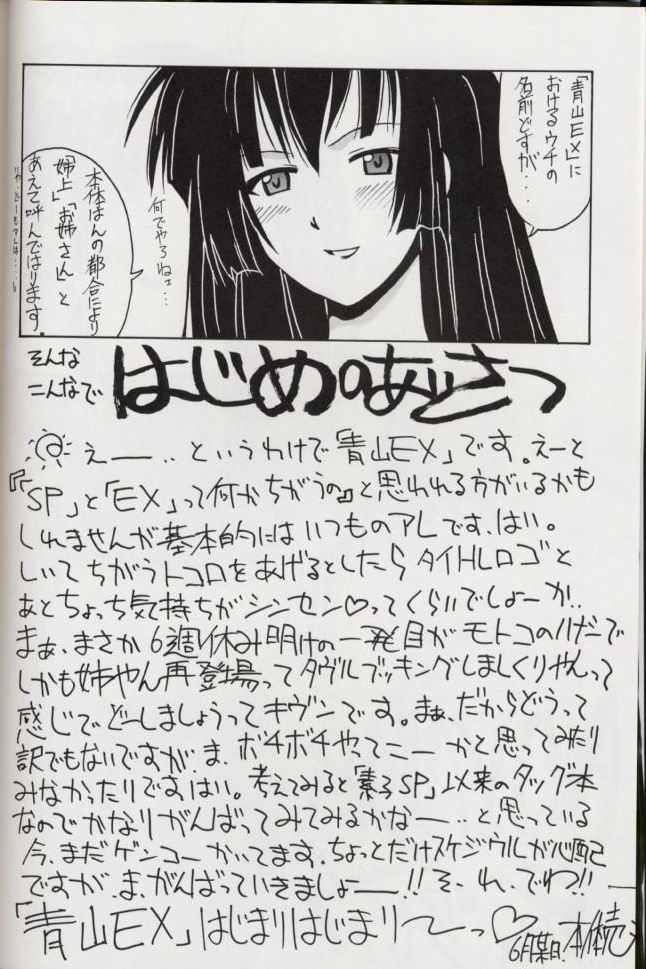 「青山EX」に
おけるウチの
名前どすが・・
何でやろねェ・・・
本体はんの都合により
「姉上」「お姉さん」と
あえて呼んではります。
そんな
こんなで
はじめのあいさつ
えー・・というわけで「青山EX」です。えーと
『「SP」と「EX」って何かちがうの』と思われる方がいるかも
しれませんが基本的にはいつものアレです、はい。
しいてちがうトコロをあげるとしたらタイトルロゴと
あとちょっち気持ちがシンセン♡ってくらいでしょーか・・
まぁ、まさか6週休み明けの一発目がモトコのハダーで
しかも姉やん再登場ってダヴルブッキングしましくりやんって
感じでどーしましょうってキヴンです。まぁ、だからどうって
訳でもないですが、ま、ボチボチやってこーかと思ってみたり
みなかったりですはい。考えてみると「素子SP」以来のタッグ本
なのでかなりがんばってみてみるかなー・・と思っている
今、まだゲンコーかいてます、ちょっとだけスケジウルが心配
ですが、ま、がんばっていきましょー!!そ、れ、でわ!!
「青山EX」はじまりはじまり〜っ♡
6月某日、本体売